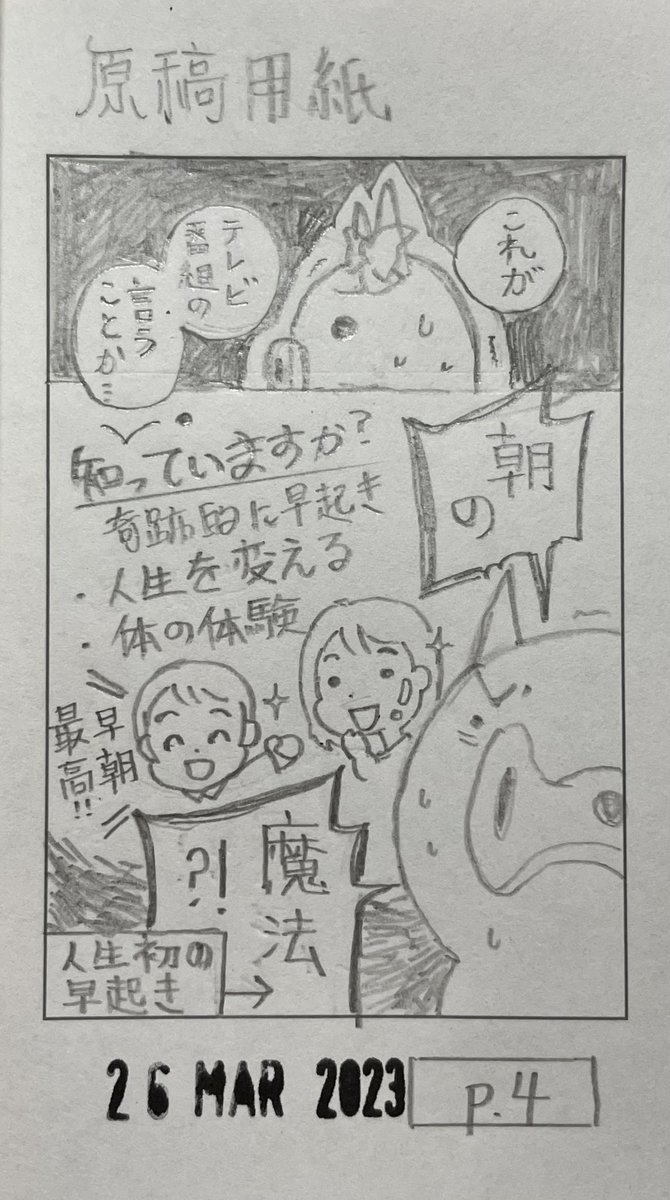 原稿用紙
これが
テレビ
番組の
言う
ことか…
朝
の
知っていますか?
奇跡的に早起き
・人生を変える
・体の体験
早朝
最高!!
魔法
?!
人生初の
早起き→
26 MAR 2023
p.4